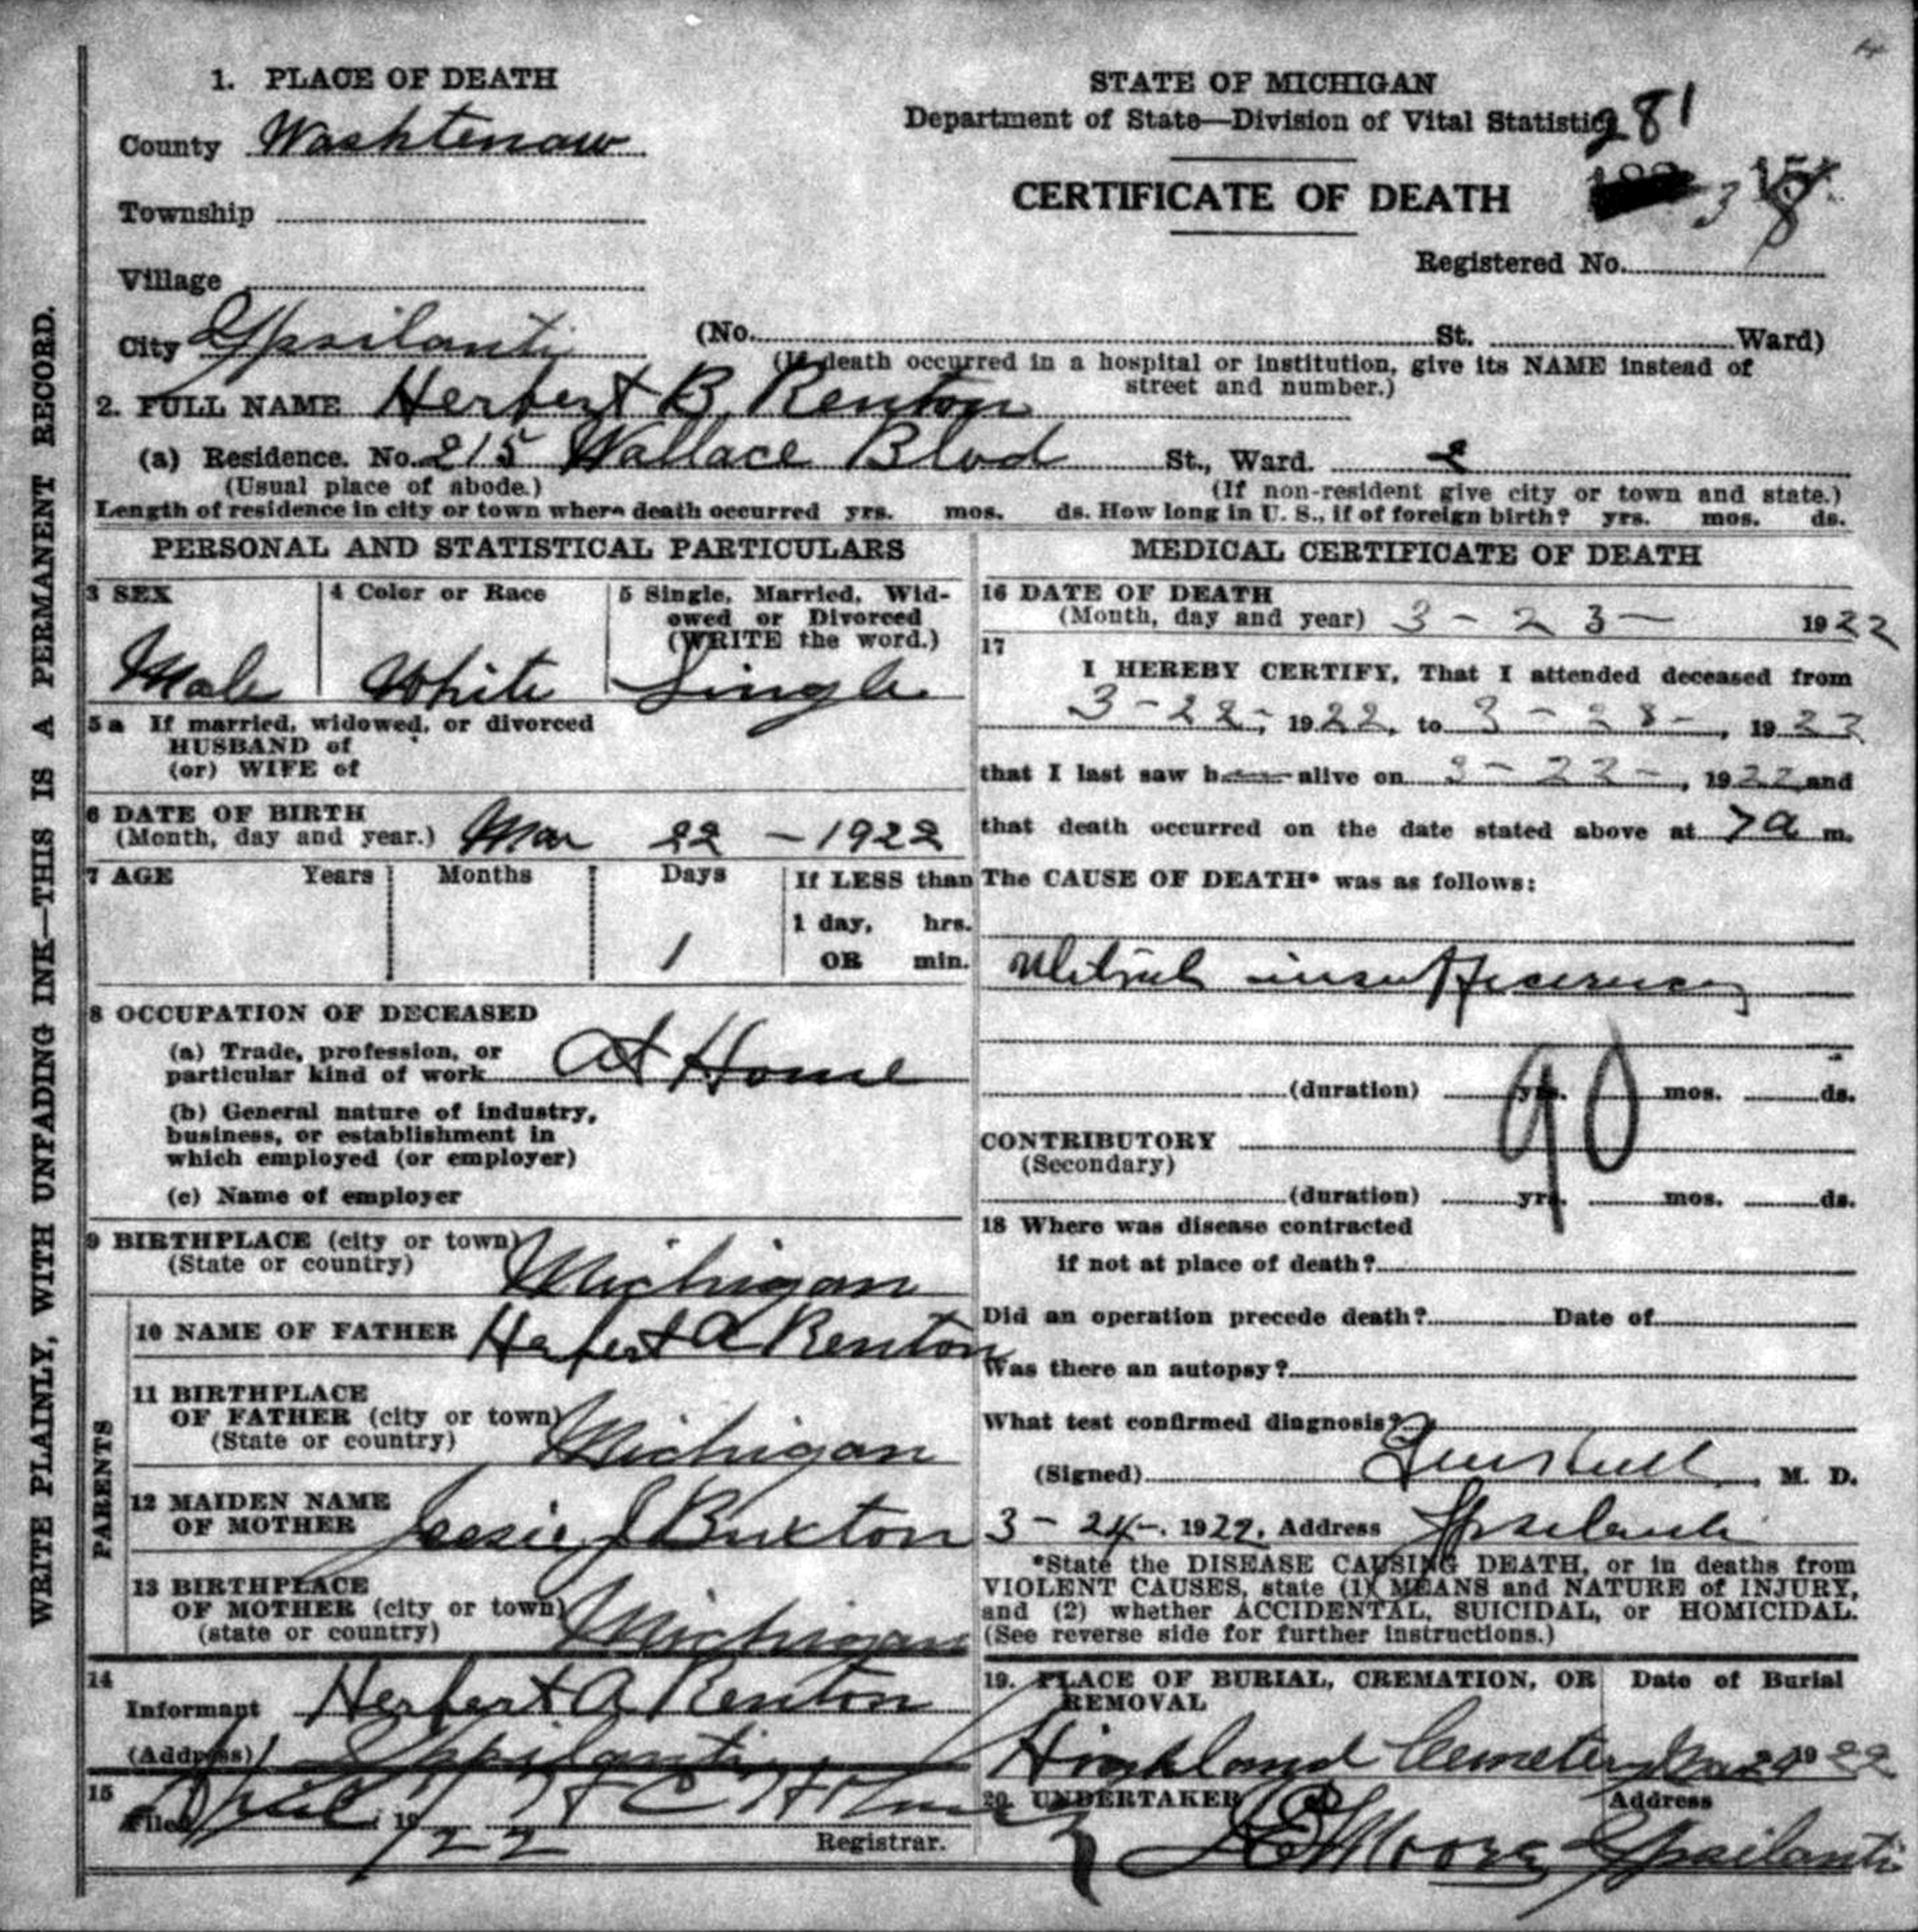 WRITE PLAINLY, WITH UNFADING INK—THIS IS A PERMANENT RECORD.
1. PLACE OF DEATH
County Washtenaw
Township
Village
City Ypsilanti
STATE OF MICHIGAN
Department of State—Division of Vital Statistics
281
CERTIFICATE OF DEATH
3
Registered No. 8
(No. St. Ward)
(If death occurred in a hospital or institution, give its NAME instead of
street and number.)
2. FULL NAME Herbert B. Renton
(a) Residence. No. 215 Wallace Blvd St., Ward. 2
(Usual place of abode.) (If non-resident give city or town and state.)
Length of residence in city or town where death occurred yrs. mos. ds. How long in U. S., if of foreign birth? yrs. mos. ds.
PERSONAL AND STATISTICAL PARTICULARS
3 SEX
Male
4 Color or Race
White
5 Single, Married, Wid-
owed or Divorced
(WRITE the word.)
Single
5a If married, widowed, or divorced
HUSBAND of
(or) WIFE of
6 DATE OF BIRTH
(Month, day and year.) Mar 22 - 1922
7 AGE Years Months Days If LESS than
1 day, hrs.
1 OR min.
8 OCCUPATION OF DECEASED
(a) Trade, profession, or
particular kind of work At Home
(b) General nature of industry,
business, or establishment in
which employed (or employer)
(c) Name of employer
9 BIRTHPLACE (city or town)
(State or country) Michigan
PARENTS
10 NAME OF FATHER Herbert A Renton
11 BIRTHPLACE
OF FATHER (city or town)
(State or country) Michigan
12 MAIDEN NAME
OF MOTHER Jessie J Buxton
13 BIRTHPLACE
OF MOTHER (city or town)
(state or country) Michigan
14
Informant Herbert A Renton
(Address) Ypsilanti
15
Filed April 1, 19 22 H C
Registrar.
MEDICAL CERTIFICATE OF DEATH
16 DATE OF DEATH
(Month, day and year) 3 - 23 - 1922
17
I HEREBY CERTIFY, That I attended deceased from
3-22-, 1922, to 3-23-, 1922
that I last saw h alive on 3-22-, 1922 and
that death occurred on the date stated above at 7 a m.
The CAUSE OF DEATH* was as follows:
Mitral insufficiency
(duration) yrs. mos. ds.
90
CONTRIBUTORY
(Secondary)
(duration) yrs. mos. ds.
18 Where was disease contracted
if not at place of death?
Did an operation precede death? Date of
Was there an autopsy?
What test confirmed diagnosis?
(Signed) M. D.
3-24-, 1922, Address Ypsilanti
*State the DISEASE CAUSING DEATH, or in deaths from
VIOLENT CAUSES, state (1) MEANS and NATURE of INJURY,
and (2) whether ACCIDENTAL, SUICIDAL, or HOMICIDAL.
(See reverse side for further instructions.)
19. PLACE OF BURIAL, CREMATION, OR
REMOVAL
Highland Cemetery
Date of Burial
Mar 24 1922
20. UNDERTAKER
Moore
Address
Ypsilanti